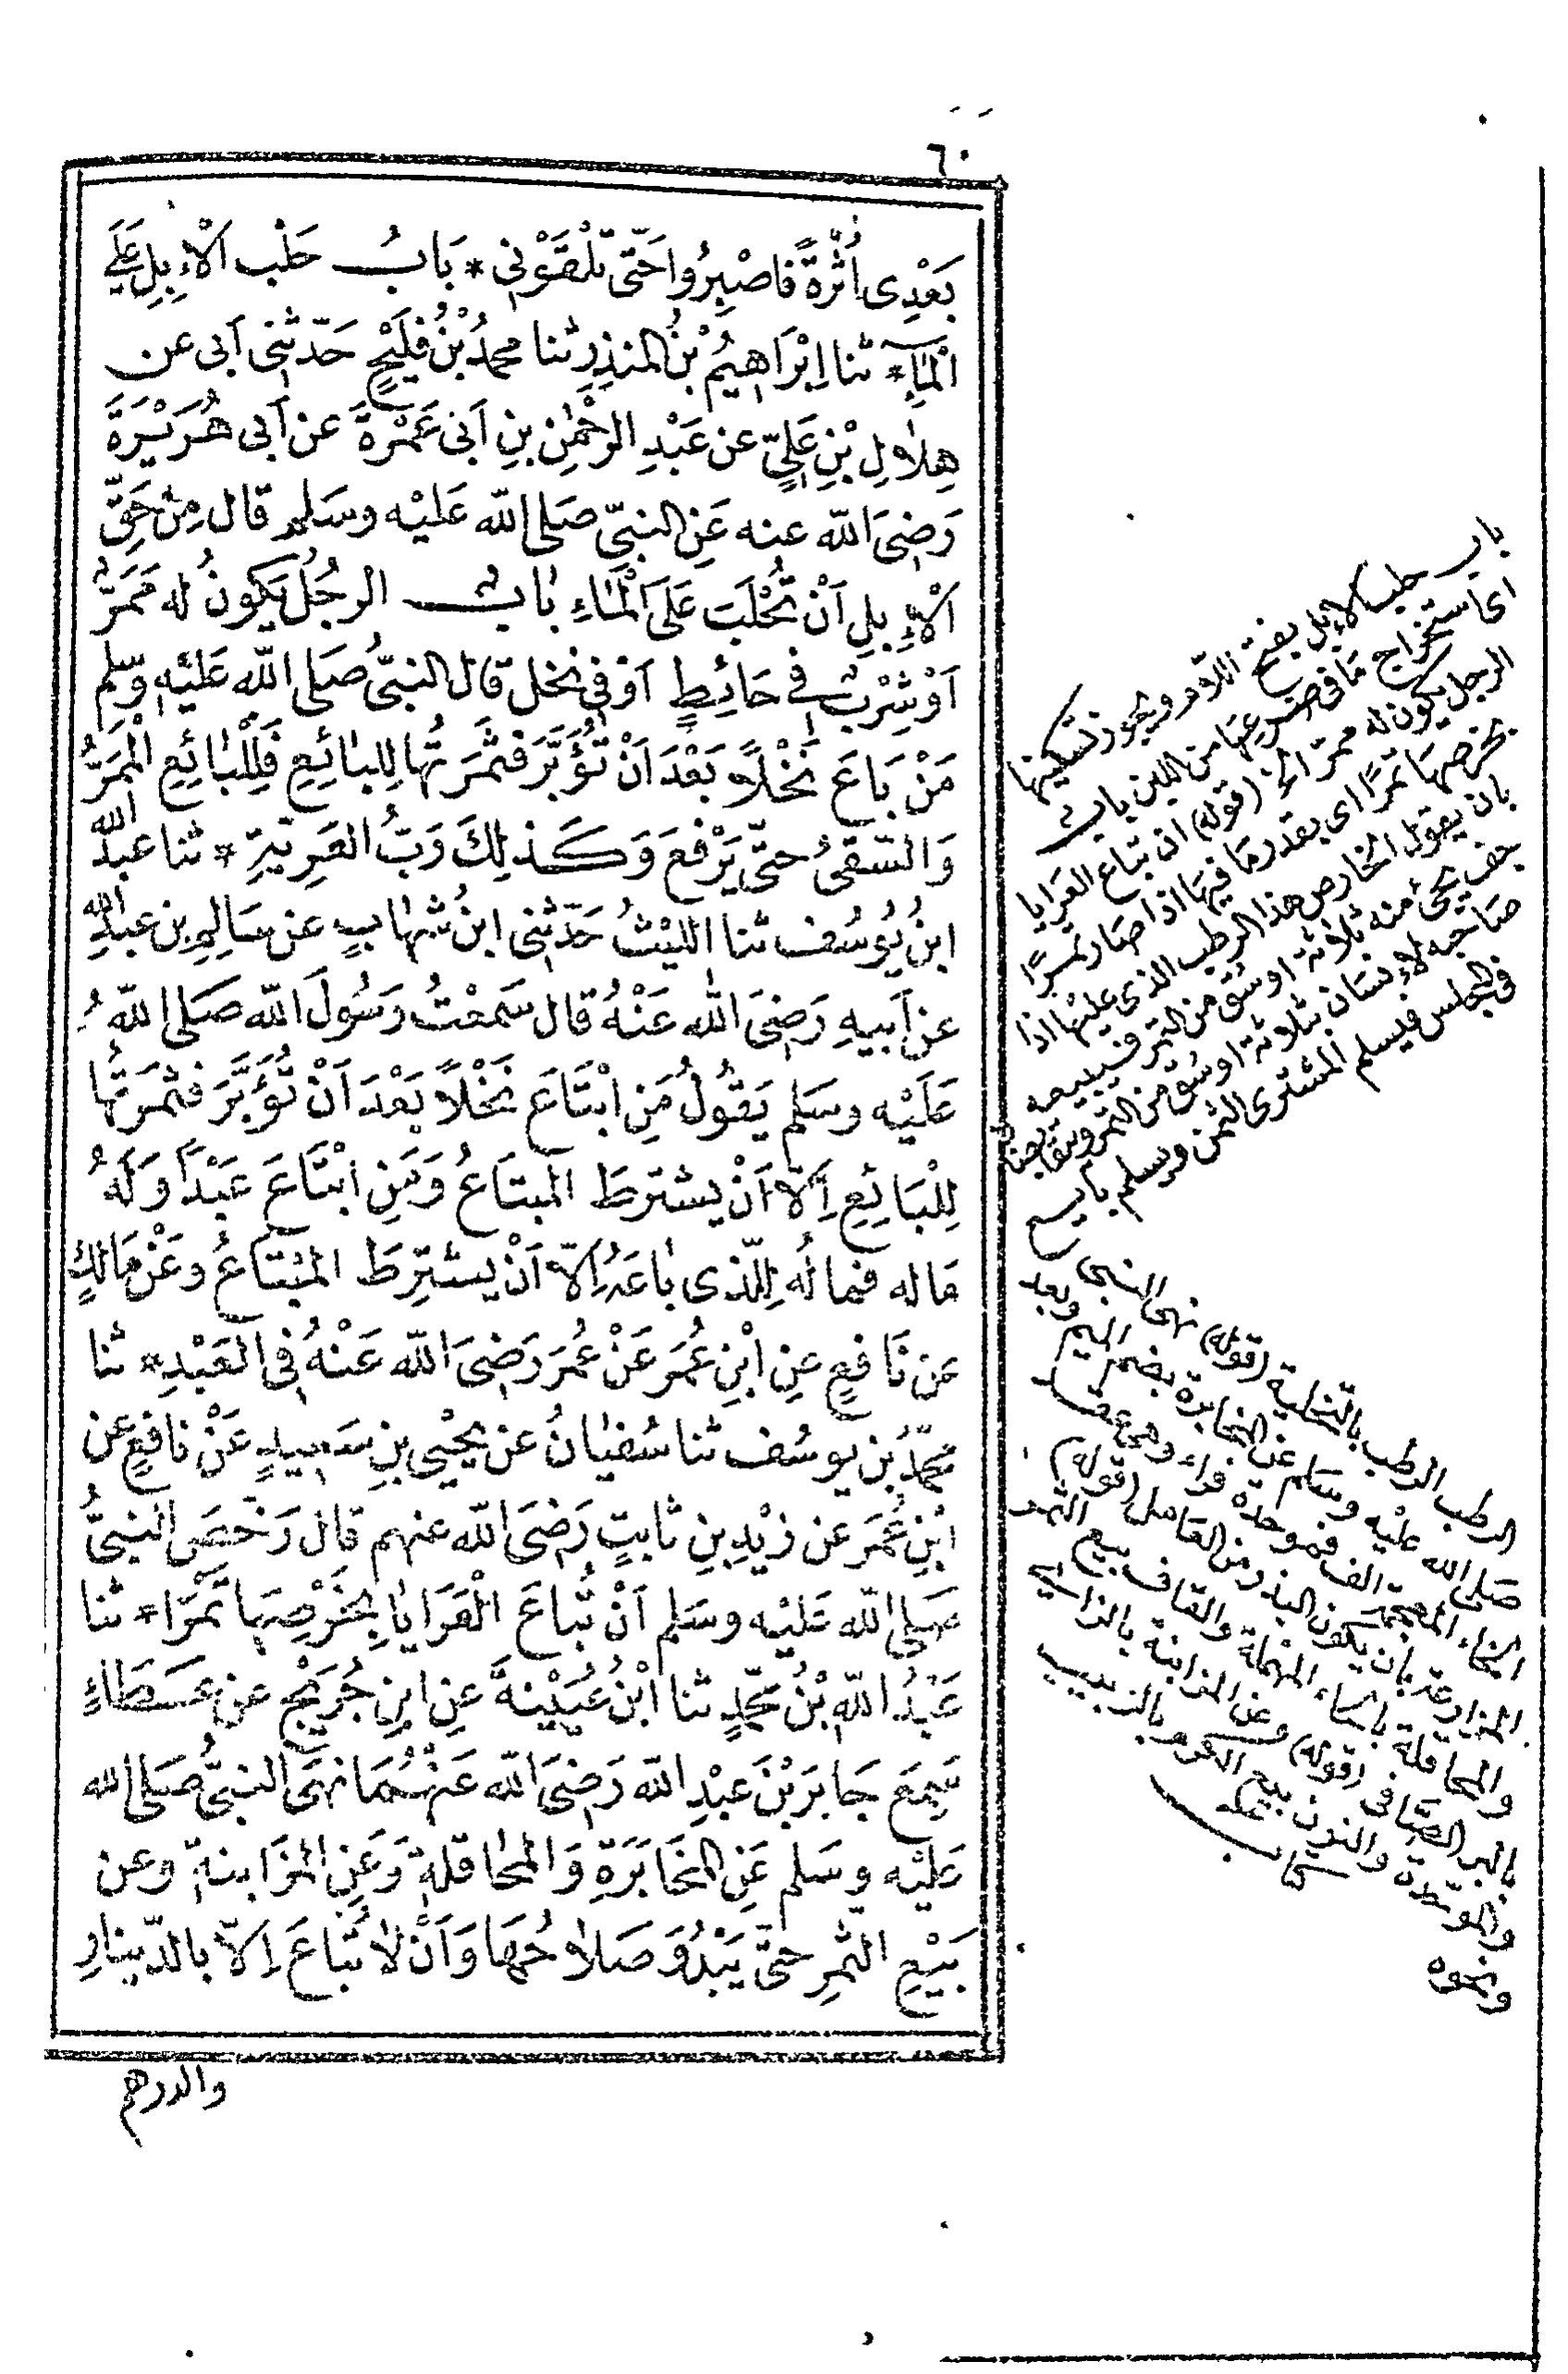 ٦٠
بَعْدِى اُثْرَةً فَاصْبِرُوا حَتّى تَلْقَوْنِى * بَابُ حَلْبِ الْاِبِلِ عَلَى
الْمَاءِ * ثنا اِبْرَاهِيمُ بْنُ المنذِرِ ثنا محمدُ بْنُ فُلَيْحٍ حَدّثَنِى اَبِى عن
هِلَالِ بْنِ عَلِىٍّ عن عَبْدِ الرحْمٰنِ بنِ اَبِى عَمْرَةَ عن اَبِى هُرَيْرَةَ
رَضِىَ اللّه عنه عَنِ النبىّ صَلى اللّه عَليْه وسَلم قال مِنْ حَقّ
الْاِبِلِ اَنْ تُحْلَبَ عَلَى الْمَاءِ بابُ الرجُلُ يَكونُ له مَمَرٌّ
اَوْ شِرْبٌ فِى حَائِطٍ اَوْ فِى نخل قال النبىُّ صَلى اللّه عَليْه وسلم
مَنْ بَاعَ نَخْلًا بَعْدَ اَنْ تُؤَبَّرَ فَثَمَرَتُها لِلبائِعِ فَلِلْبائِعِ الْمَمَرُّ
وَالسّقىُ حتّى يَرْفَعَ وَكَذلِكَ رَبُّ العَرِيّةِ * ثنا عبدُ اللّه
ابنُ يُوسُف ثنا الليْثُ حَدّثنِى ابنُ شِهابٍ عن سَالِمِ بن عبدِ اللّه
عن اَبيهِ رَضِىَ اللّٰه عَنْهُ قال سَمعْتُ رَسُولَ اللّه صَلى اللّه
عَلَيْه وسَلم يَقُولُ مَنِ ابْتَاعَ نَخْلًا بَعْدَ اَنْ تُؤَبَّرَ فثَمَرَتُها
لِلْبَائِعِ اِلّا اَنْ يشترطَ المبتَاعُ وَمَنِ ابْتَاعَ عَبْدًا وَلَهُ
مَال له فمالُه لِلّذِى باعَهُ اِلّا اَنْ يشترِطَ المبْتاعُ وعَنْ مَالكٍ
عن نَافِعٍ عنِ ابْنِ عُمَرَ عَنْ عُمَرَ رَضِىَ اللّه عَنْهُ فِى العَبْدِ * ثنا
محمّدُ بن يوسُف ثنا سُفيَانُ عن يحْيى بنِ سَعِيدٍ عَنْ نافعٍ عن
ابْنِ عُمَرَ عن زيْدِ بنِ ثابتٍ رَضِىَ اللّه عنهم قال رَخّصَ النبىُّ
صَلى اللّه عَليْه وسَلم اَنْ تُباعَ الْعَرَايَا بِخَرْصِهَا تَمْرًا * ثنا
عَبْدُ اللّه بْنُ محمّدٍ ثنا ابْنُ عُيَيْنةَ عَنِ ابنِ جُرَيْجٍ عن عَطَاءٍ
سَمِعَ جَابرَ بْنَ عَبْدِ اللّه رَضِىَ اللّه عَنْهُمَا نهَى النبىُّ صَلى اللّه
عَليْه وسَلم عَنِ المخَابَرَةِ وَالمحاقَلةِ وَعَنِ المزَابنةِ وعن
بَيْعِ الثمرِ حتّى يَبْدُوَ صَلاحُهَا وَاَنْ لا تُباعَ اِلّا بالدّينارِ
والدرهم
باب حلب الابل بفتح اللام ويجوز تسكينها
اى استخراج ما فى ضرعها من اللبن باب
الرجل يكون له ممرّ الخ (قوله) ان تباع العرايا
بخرصها تمرًا اى بقدر ما فيها اذا صار تمرًا
بان يقول الخارص هذا الرطب الذى عليها اذا
جف يجئ منه ثلاثة اوسق من التمر فيبيعه
صاحبه لانسان بثلاثة اوسق من التمر ويتقابضان
فى المجلس فيسلم المشترى الثمن ويسلم بايع
الرطب الرطب بالتخلية (قوله) نهى النبى
صلى اللّه عليه وسلم عن المخابرة بضم الميم وبعد
الخاء المعجمة الف فموحدة فراء وهى عقد
المزارعة بان يكون البذر من العامل (قوله)
والمحاقلة بالحاء المهملة والقاف بيع الثمر
بالبر الصافى (قوله) وعن المزابنة بالزاى
والموحدة والنون بيع الكرم بالزبيب
ونحوه